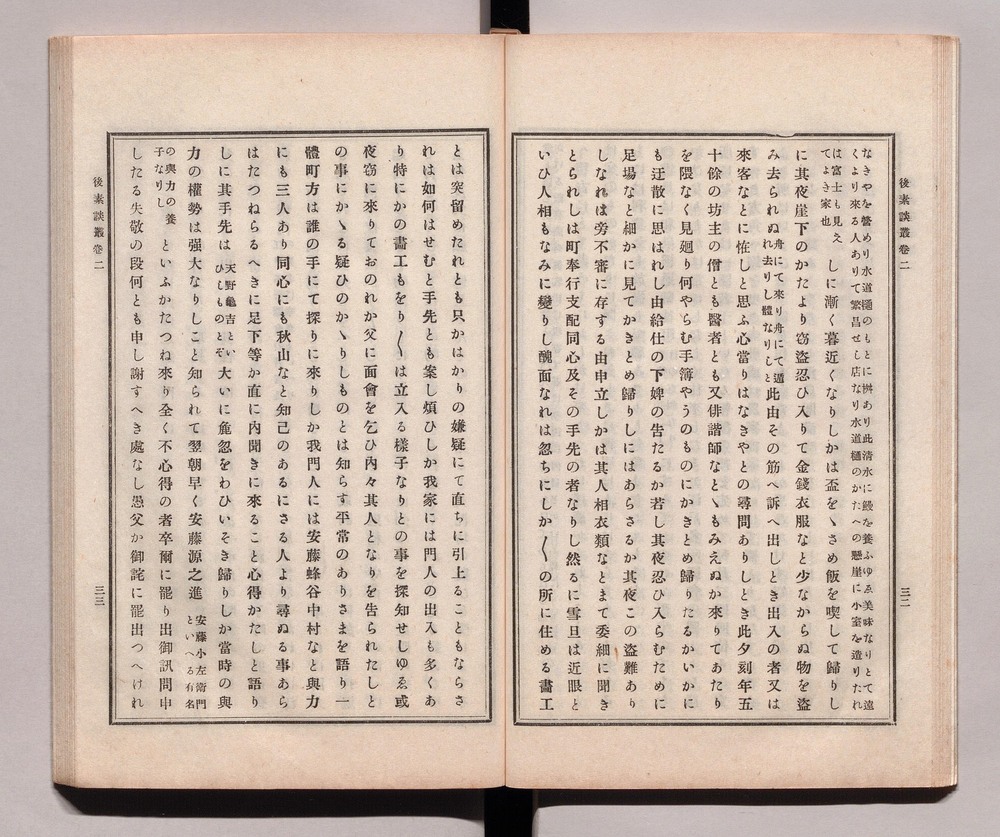 後素談叢卷二
三二
なきやを營めり水道樋のもとに桝あり此清水に鰻を養ふゆゑ美味なりとて遠
くより來る人ありて繁昌せし店なり水道樋のかたへの懸崖に小室を造りたれ
は富士も見え
てよき家也
しに漸く暮近くなりしかは盃をゝさめ飯を喫して歸りし
に其夜崖下のかたより窃盜忍ひ入りて金錢衣服なと少なからぬ物を盜
み去られぬ
舟にて來り舟にて遁
れ去りし體なりしと
此由その筋へ訴へ出しとき出入の者又は
來客なとに恠しと思ふ心當りはなきやとの尋問ありしとき此夕刻年五
十餘の坊主の僧とも醫者とも又俳諧師なとゝもみえぬか來りてあたり
を隈なく見廻り何やらむ手簿やうのものにかきとめ歸りたるかいかに
も迂散に思はれし由給仕の下婢の告たるか若し其夜忍ひ入らむために
足場なと細かに見てかきとめ歸りしにはあらさるか其夜この盜難あり
しなれは旁不審に存する由申立しかは其人相衣類なとまて委細に聞き
とられしは町奉行支配同心及その手先の者なりし然るに雪旦は近眼と
いひ人相もなみに變りし醜面なれは忽ちにしか〱の所に住める畵工
とは突留めたれとも只かはかりの嫌疑にて直ちに引上ることもならさ
れは如何はせむと手先とも案し煩ひしか我家には門人の出入も多くあ
り特にかの畵工もをり〱は立入る樣子なりとの事を探知せしゆゑ或
夜窃に來りておのれか父に面會を乞ひ內々其人となりを告られたしと
の事にかゝる疑ひのかゝりしものとは知らす平常のありさまを語り一
體町方は誰の手にて探りに來りしか我門人には安藤蜂谷中村なと與力
にも三人あり同心にも秋山なと知己のあるにさる人より尋ぬる事あら
はたつねらるへきに足下等か直に內聞きに來ること心得かたしと語り
しに其手先は
天野龜吉とい
ひしものとそ
大いに麁忽をわひいそき歸りしか當時の與
力の權勢は强大なりしこと知られて翌朝早く安藤源之進
安藤小左衞門
といへる有名
の與力の養
子なりし
といふかたつね來り全く不心得の者卒爾に罷り出御訊問申
したる失敬の段何とも申し謝すへき處なし愚父か御詫に罷出つへけれ
後素談叢卷二
三三